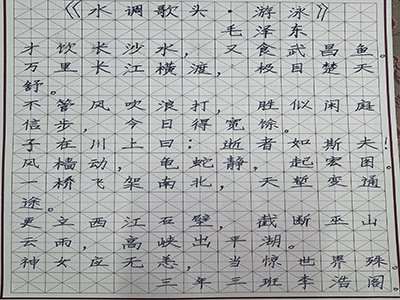 《水调歌头·游泳》
毛泽东
才饮长沙水，又食武昌鱼
万里长江横渡，极目楚天
舒。
不管风吹浪打，胜似闲庭
信步，今日得宽馀。
子在川上曰：逝者如斯夫！
风樯动，龟蛇静，起宏图
一桥飞架南北，天堑变通
途。
更立西江石壁，截断巫山
云雨，高峡出平湖。
神女应无恙，当惊世界殊
三年三班李浩阁